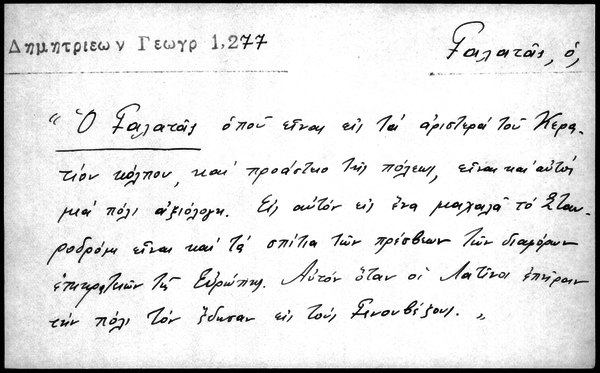 Δημητριεων Γεωγρ 1,277
Γαλατᾶς, ὁ,
“Ὁ Γαλατᾶς ὁποῦ εἶναι εἰς τὰ ἀριστερὰ τοῦ Κερα-
τίου κόλπου, καὶ προάστειο τῆς πόλεως, εἶναι καὶ αὐτὸς
μιὰ πόλι ἀξιόλογη. Εἰς αὐτὸν εἰς ἕνα μαχαλᾶ τὸ Σταυ-
ροδρόμι εἶναι καὶ τὰ σπίτια τῶν πρέσβεων τῶν διαφόρων
ἐπικρατειῶν τῆς Εὐρώπης. Αὐτὸν ὅταν οἱ Λατῖνοι ἐπῆραν
τὴν πόλι τὸν ἔδωσαν εἰς τοὺς Γενουβέζους. „